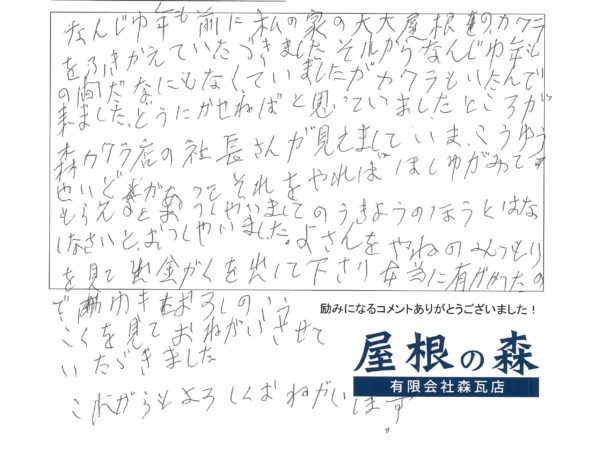 なんじゆ年も前に私の家の大大屋根のカワラ
をふきかえていたづきました それからなんじゆ年も
の間だなにもなくていましたがカワラもいたんで
来ました、どうにかせねばと思っていました、ところが
森カワラ店の社長さんが見えまして いま、こうゆう
せいどがあって それをやれば ほしゆがみてす
もらえるとおっしやいまして のうきようのほうとはな
しなさいと、おっしやいました。よさんを やねのみつもり
を見て 出金がくを出して下さり 本当に有がかつたの
で ゆきおろしの
こくを見ておねがいさせて
いたづきました
これからもよろしくおねがいします
励みになるコメントありがとうございました！
屋根の森
有限会社森瓦店